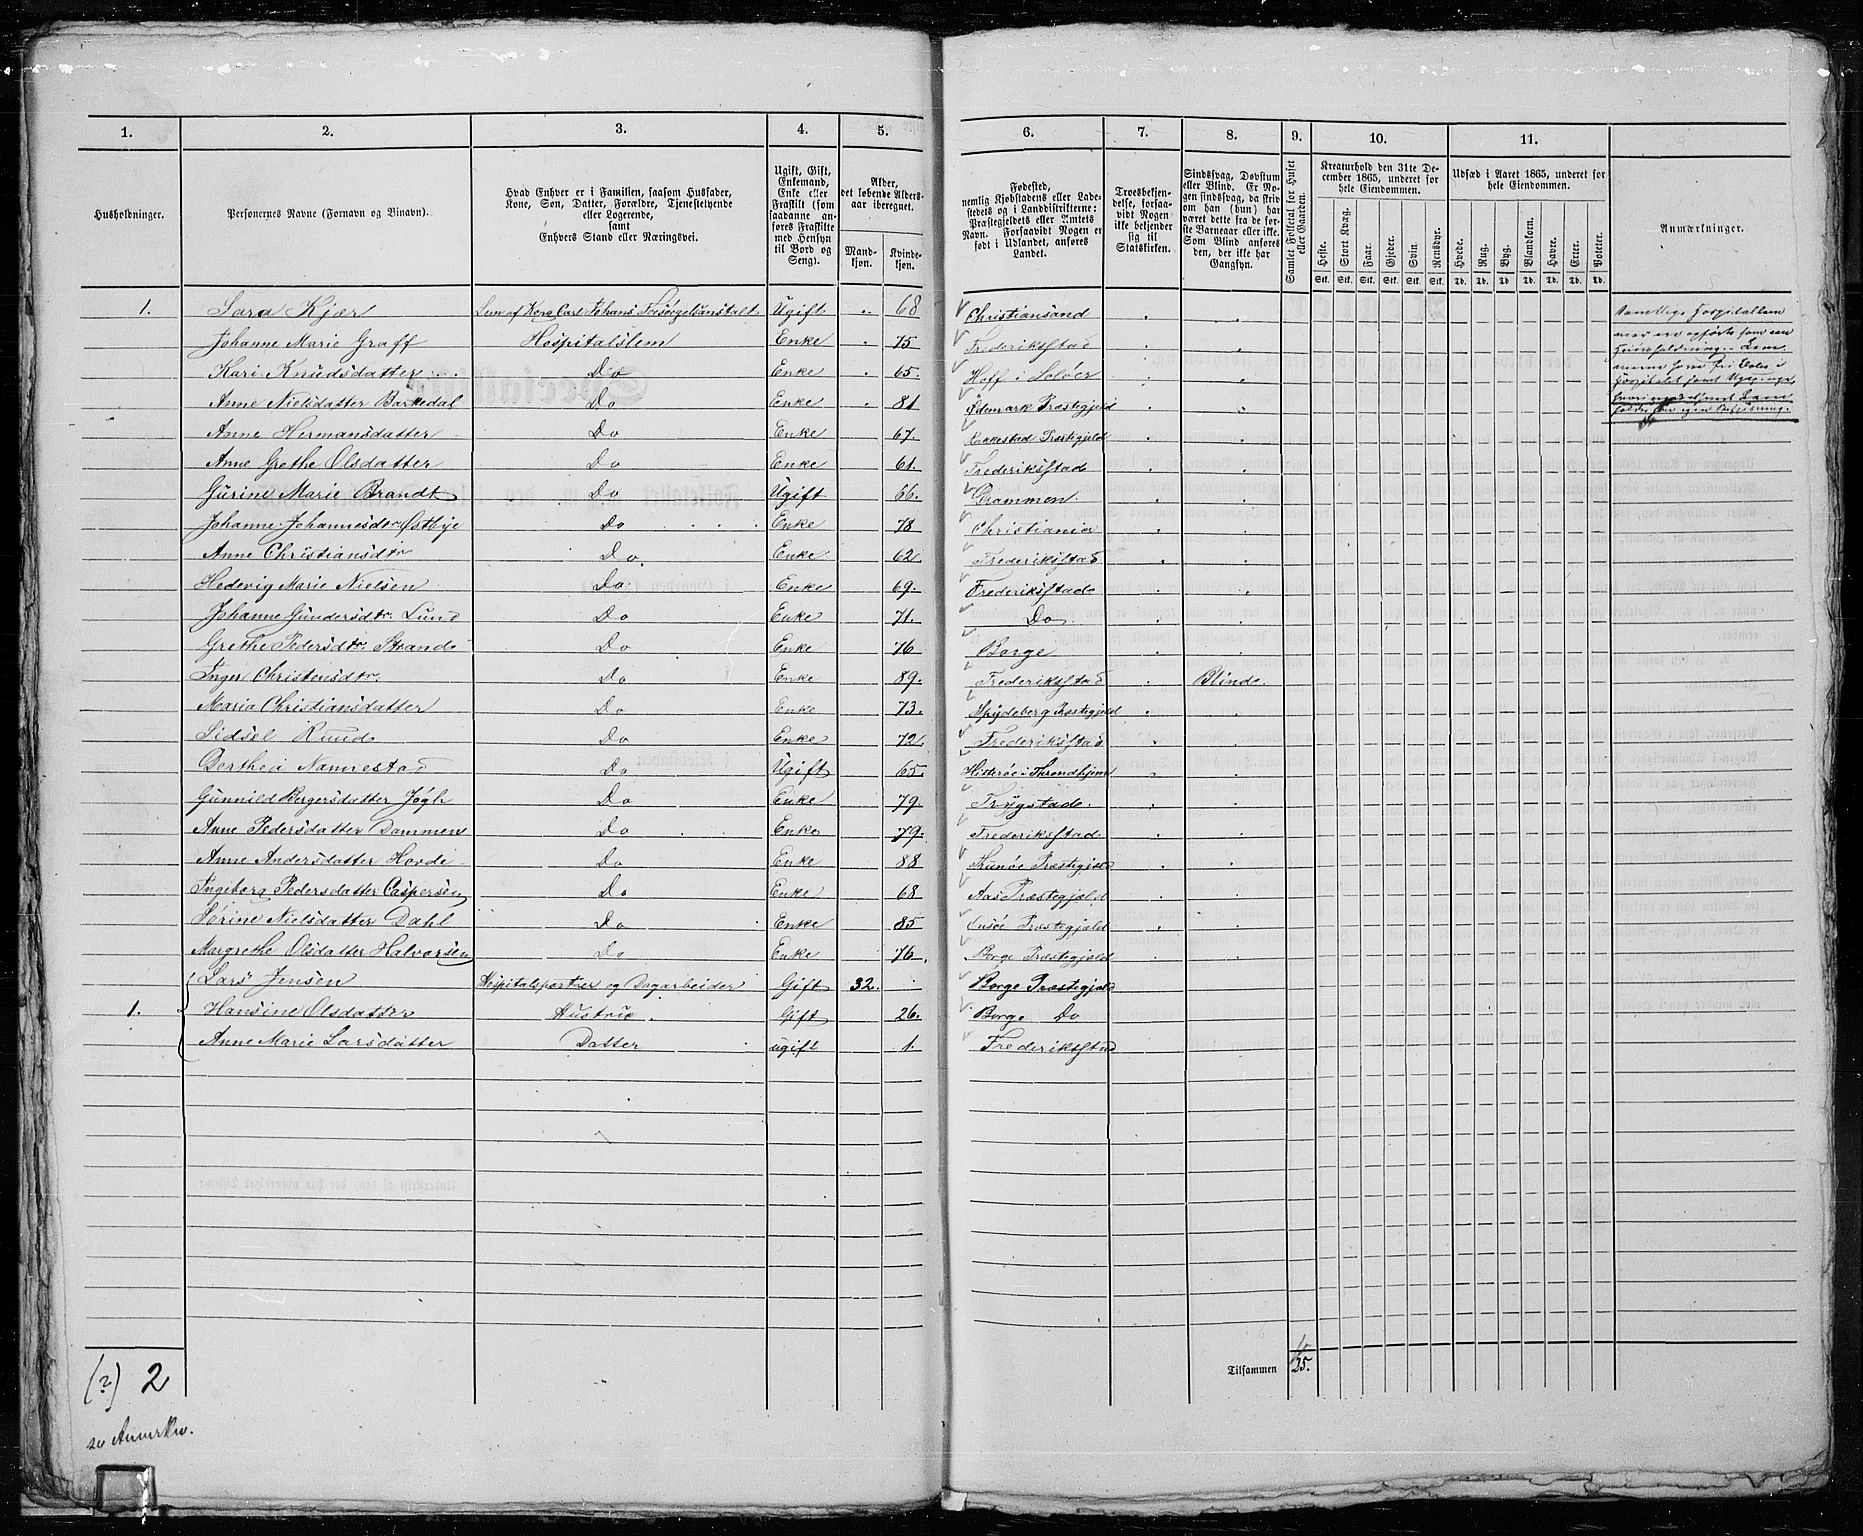 1. 2. 3. 4. 5. 6. 7. 8. 9. 10. 11.
Husholdninger.
Personernes Navne (Fornavn og Binavn).
Hvad Enhver er i Familien, saasom Husfader,
Kone, Søn, Datter, Forældre, Tjenestetyende
eller Logerende,
samt
Enhvers Stand eller Næringsvei.
Ugift, Gift,
Enkemand,
Enke eller
Fraskilt (som
saadanne an-
føres Fraskilte
med Hensyn
til Bord og
Seng).
Alder,
det løbende Alders-
aar iberegnet.
Mand-
kjøn.
Kvinde-
kjøn.
Fødested,
nemlig Kjøbstadens eller Lade-
stedets og i Landdistrikterne:
Præstegjeldets eller Amtets
Navn. Forsaavidt Nogen er
født i Udlandet, anføres
Landet.
Troesbekjen-
delse, forsaa-
vidt Nogen
ikke bekjender
sig til
Statskirken.
Sindssvag, Døvstum
eller Blind. Er No-
gen sindssvag, da skriv
om han (hun) har
været dette fra de før-
ste Barneaar eller ikke.
Som Blind anføres
den, der ikke har
Gangsyn.
Samlet Folketal for Huset
eller Gaarden.
Kreaturhold den 31te De-
cember 1865, underet for
hele Eiendommen.
Heste. Stort Kvæg. Faar. Gjeder. Svin. Rensdyr.
Stk. Stk. Stk. Stk. Stk. Stk.
Udsæd i Aaret 1865, underet for
hele Eiendommen.
Hvede. Rug. Byg. Blandkorn. Havre. Erter. Poteter.
Td. Td. Td. Td. Td. Td. Td.
Anmærkninger.
1. Sara Kjær Lem af Kong Carl Johans Forsørgelsanstalt Ugift 68 Christiansand
Johanne Marie Graff Hospitalslem Enke 75 Frederiksstad
Kari Knudsdatter Do Enke 65. Hoff i Soløer
Anne Nielsdatter Barkedal Do Enke 81 Ødemark Præstegjeld
Anne Hermansdatter Do Enke 67. Rakkestad Præstegjeld
Anne Grethe Olsdatter Do Enke 61. Frederiksstad
Gurine Marie Brandt Do Ugift 66. Drammen
Johanne Johannesdtr Østbye Do Enke 78 Christiania
Anne Christiansdtr Do. Enke 62. Frederiksstad
Hedevig Marie Nielsen Do Enke 69. Frederiksstad
Johanne Gundersdtr. Lund Do Enke 71. Do
Grethe Pedersdtr Strand Do Enke 76. Borge
Inger Christensdtr. Do Enke 89. Frederiksstad Blinde.
Maria Christiansdatter Do Enke 73. Spydeberg Præstegjeld
Sidsel Ruud Do Enke 72. Frederiksstad
Dorthea Nannestad Do Ugift 65. Hitterøe i Throndhjem
Gunnild Børgersdatter Jøgh Do Enke 79. Trygstad
Anne Pedersdatter Dammen Do Enke 79. Frederiksstad
Anne Andersdatter Hovde Do Enke 88 Præstegjeld
Ingeborg Pedersdatter Caspersen Do Enke 68 Aas Præstegjeld
Sørine Nielsdatter Dahl Do Enke 85. Onsøe Præstegjeld
Margrethe Olsdatter Halvorsen Do Enke 76. Borge Præstegjeld
Lars Jensen Hospitalsportner og Dagarbeider Gift 32. Borge Præstegjeld
1. Hansine Olsdatter Hustrue. Gift 26. Borge Do
Anne Marie Larsdatter Datter ugift 1. Frederiksstad
Samtlige Hospitalslem
Tilsammen 25.
(?) 2
se Anmerkn.